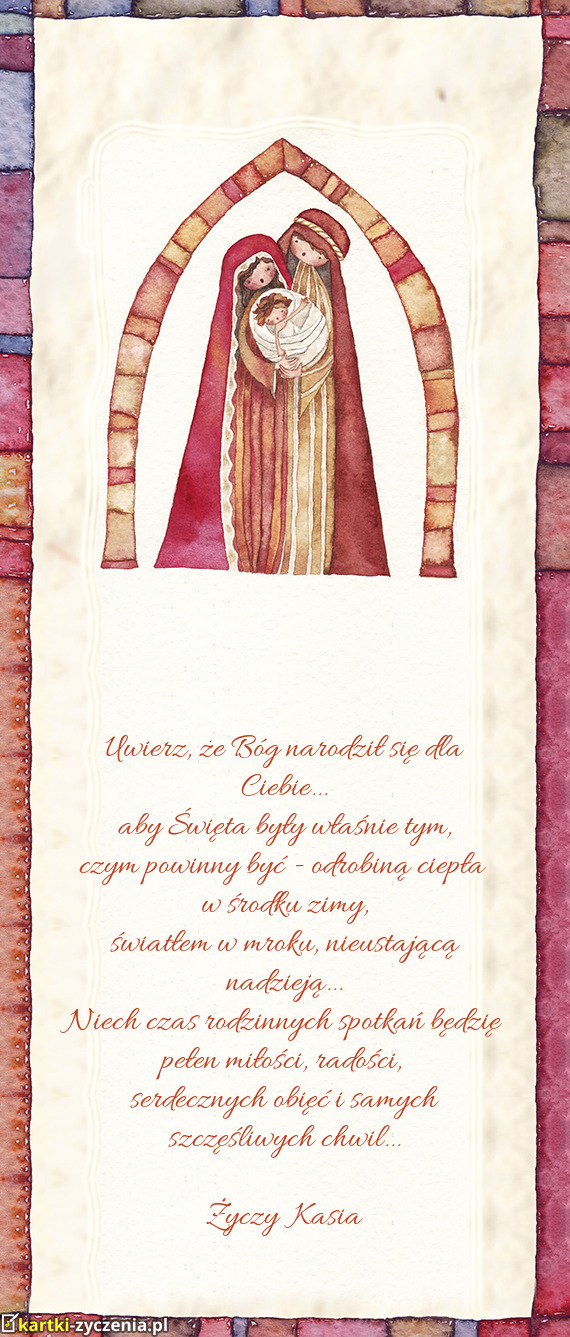 Uwierz, że Bóg narodził się dla
Ciebie...
aby Święta były właśnie tym,
czym powinny być - odrobiną ciepła
w środku zimy,
światłem w mroku, nieustającą
nadzieją...
Niech czas rodzinnych spotkań będzię
pełen miłości, radości,
serdecznych obięć i samych
szczęśliwych chwil...
Życzy Kasia
kartki-zyczenia.pl